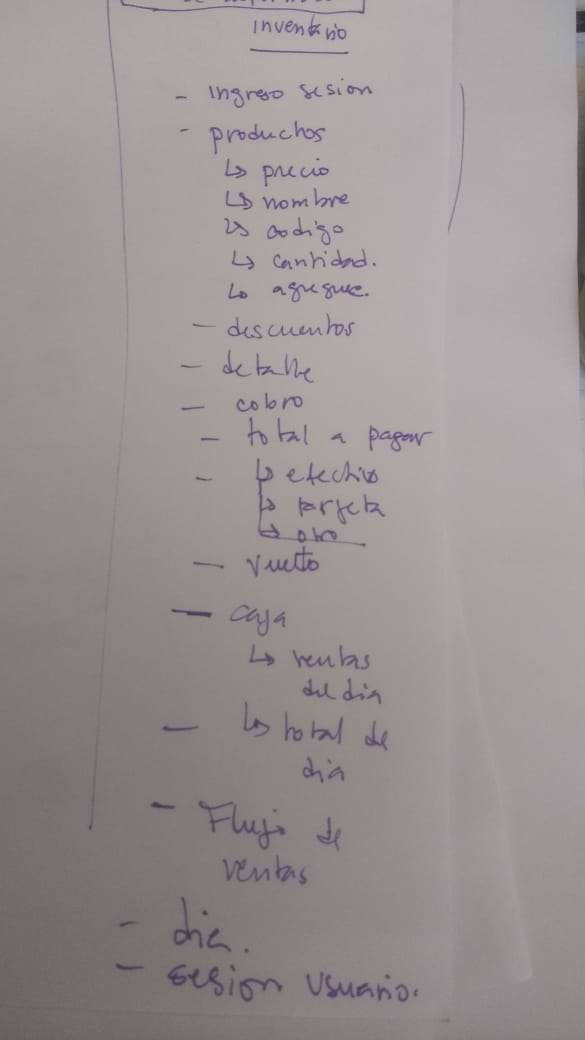 inventario
- ingreso sesion
- productos
↳ precio
↳ nombre
↳ codigo
↳ cantidad.
↳ agregue.
- descuentos
- detalle
- cobro
- total a pagar
- ↳ efectivo
↳ tarjeta
↳ otro
- vuelto
- caja
↳ ventas
del dia
- ↳ total de
dia
- Flujo de
ventas
- dia.
- sesion usuario.